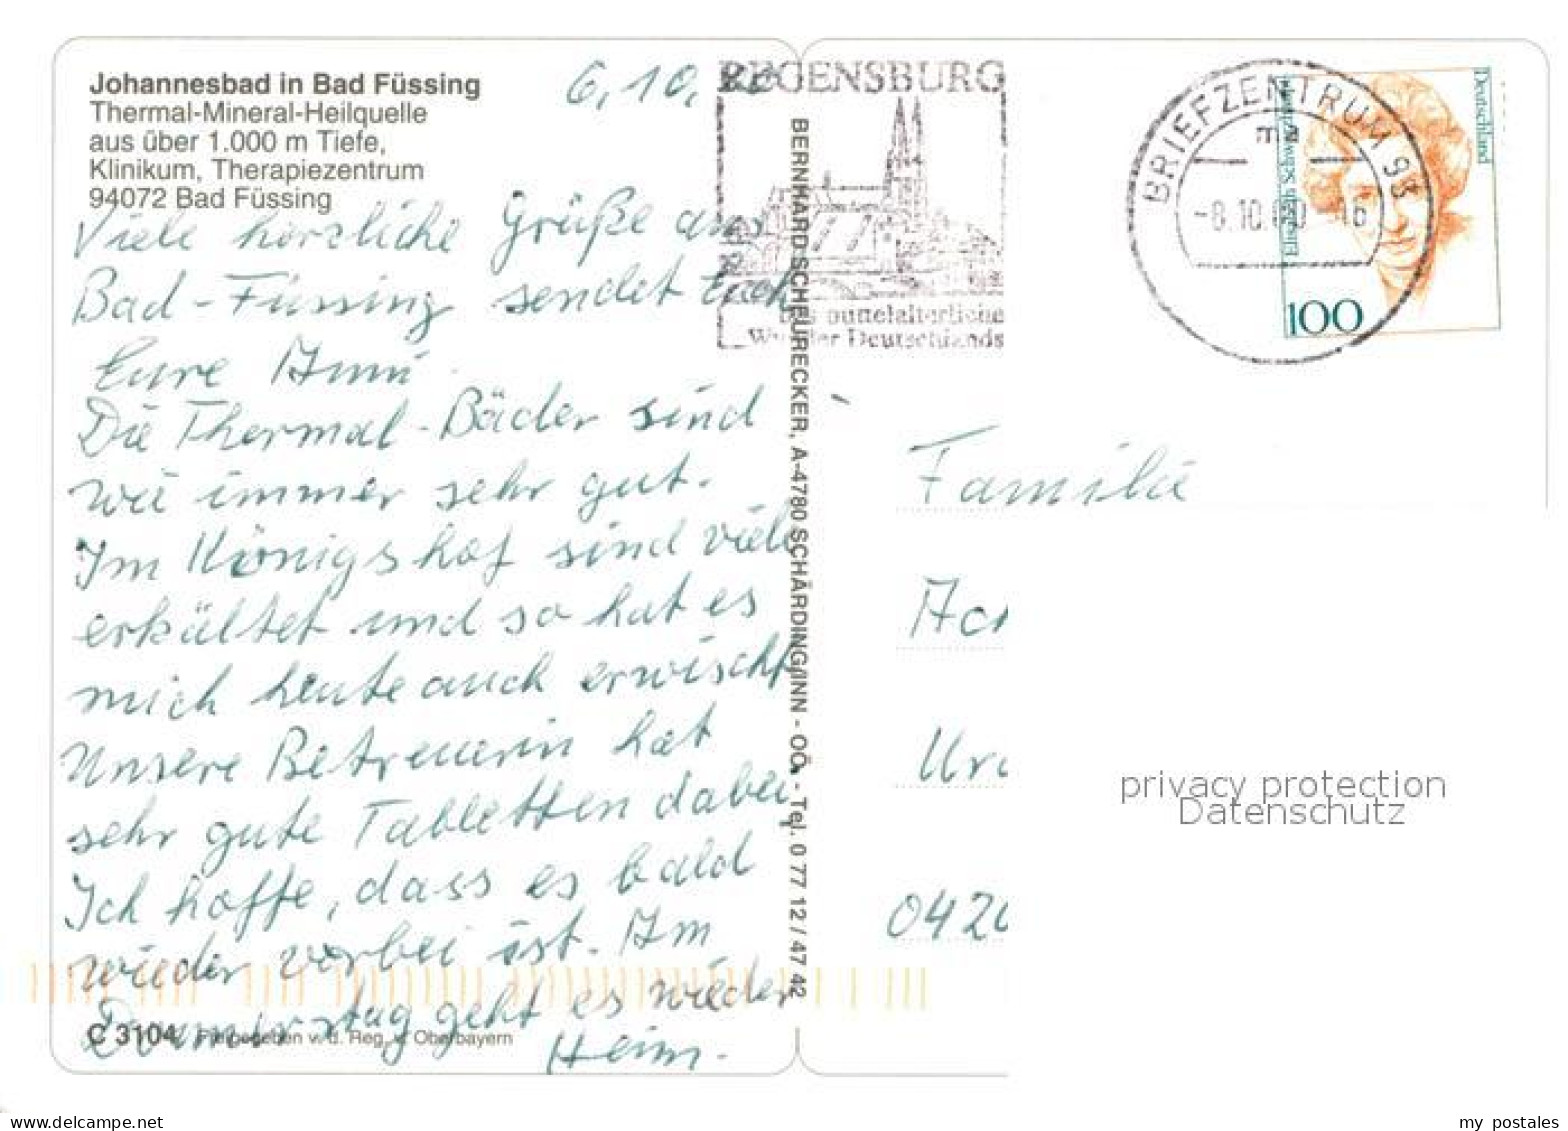 Johannesbad in Bad Füssing
Thermal-Mineral-Heilquelle
aus über 1.000 m Tiefe,
Klinikum, Therapiezentrum
94072 Bad Füssing
6.10.
Viele herzliche Grüße aus
Bad-Füssing sendet Euch
Eure
Die Thermal-Bäder sind
wie immer sehr gut.
Im Königshof sind viele
erkältet und so hat es
mich heute auch erwischt
Unsere Betreuerin hat
sehr gute Tabletten dabei
Ich hoffe, dass es bald
wieder vorbei ist. Am
Donnerstag geht es wieder
Heim.
C 3104 Freigegeben v. d. Reg. v. Oberbayern
BERNHARD SCHEURECKER, A-4780 SCHÄRDING/INN - OÖ. - Tel. 0 77 12 / 47 42
REGENSBURG
Das mittelalterliche
Wunder Deutschlands
BRIEFZENTRUM 93
ma
-8.10.00-16
Deutschland
Elisabeth Schwarzhaupt
100
Familie
privacy protection
Datenschutz
my postales